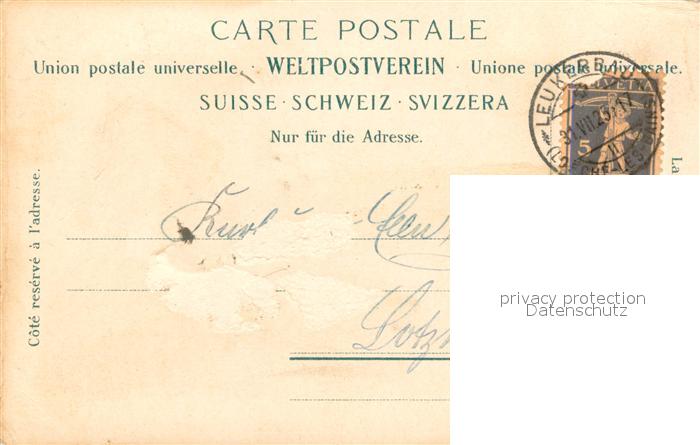 CARTE POSTALE
Union postale universelle. · WELTPOSTVEREIN · Unione postale universale.
SUISSE · SCHWEIZ · SVIZZERA
Nur für die Adresse.
Côté reservé à l'adresse.
La
LEUKERBAD
31.VII.25.17
5
Kurt
privacy protection
Datenschutz